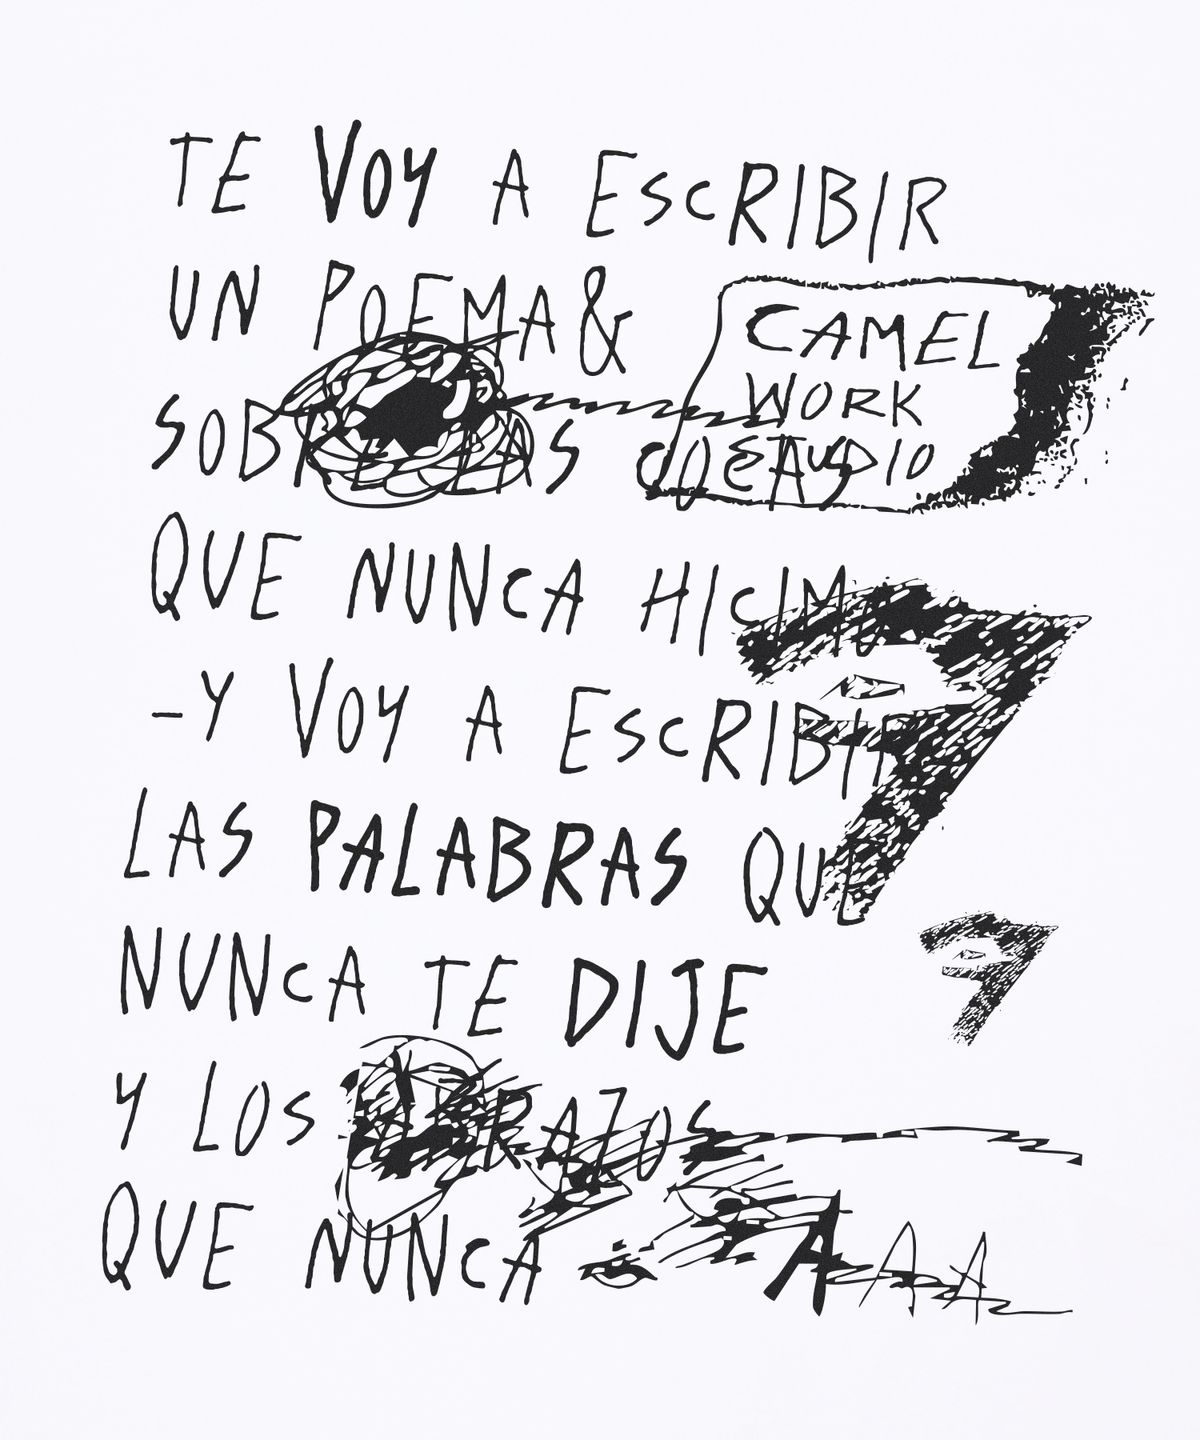 TE VOY A ESCRIBIR
UN POEMA&
CAMEL
WORK
STUDIO
SOBRE LAS COSAS
QUE NUNCA HICIMOS
-Y VOY A ESCRIBIR
LAS PALABRAS QUE
NUNCA TE DIJE
Y LOS ABRAZOS
QUE NUNCA
A A A